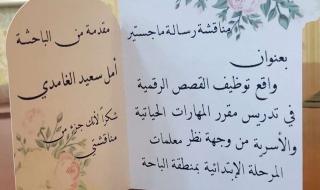 مناقشة رسالة ماجستير
بعنوان
واقع توظيف القصص الرقمية
في تدريس مقرر المهارات الحياتية
والأسرية من وجهة نظر معلمات
المرحلة الإبتدائية بمنطقة الباحة
مقدمة من الباحثة
أمل سعيد الغامدي
شكرًا لأنك جزء من
مناقشتي